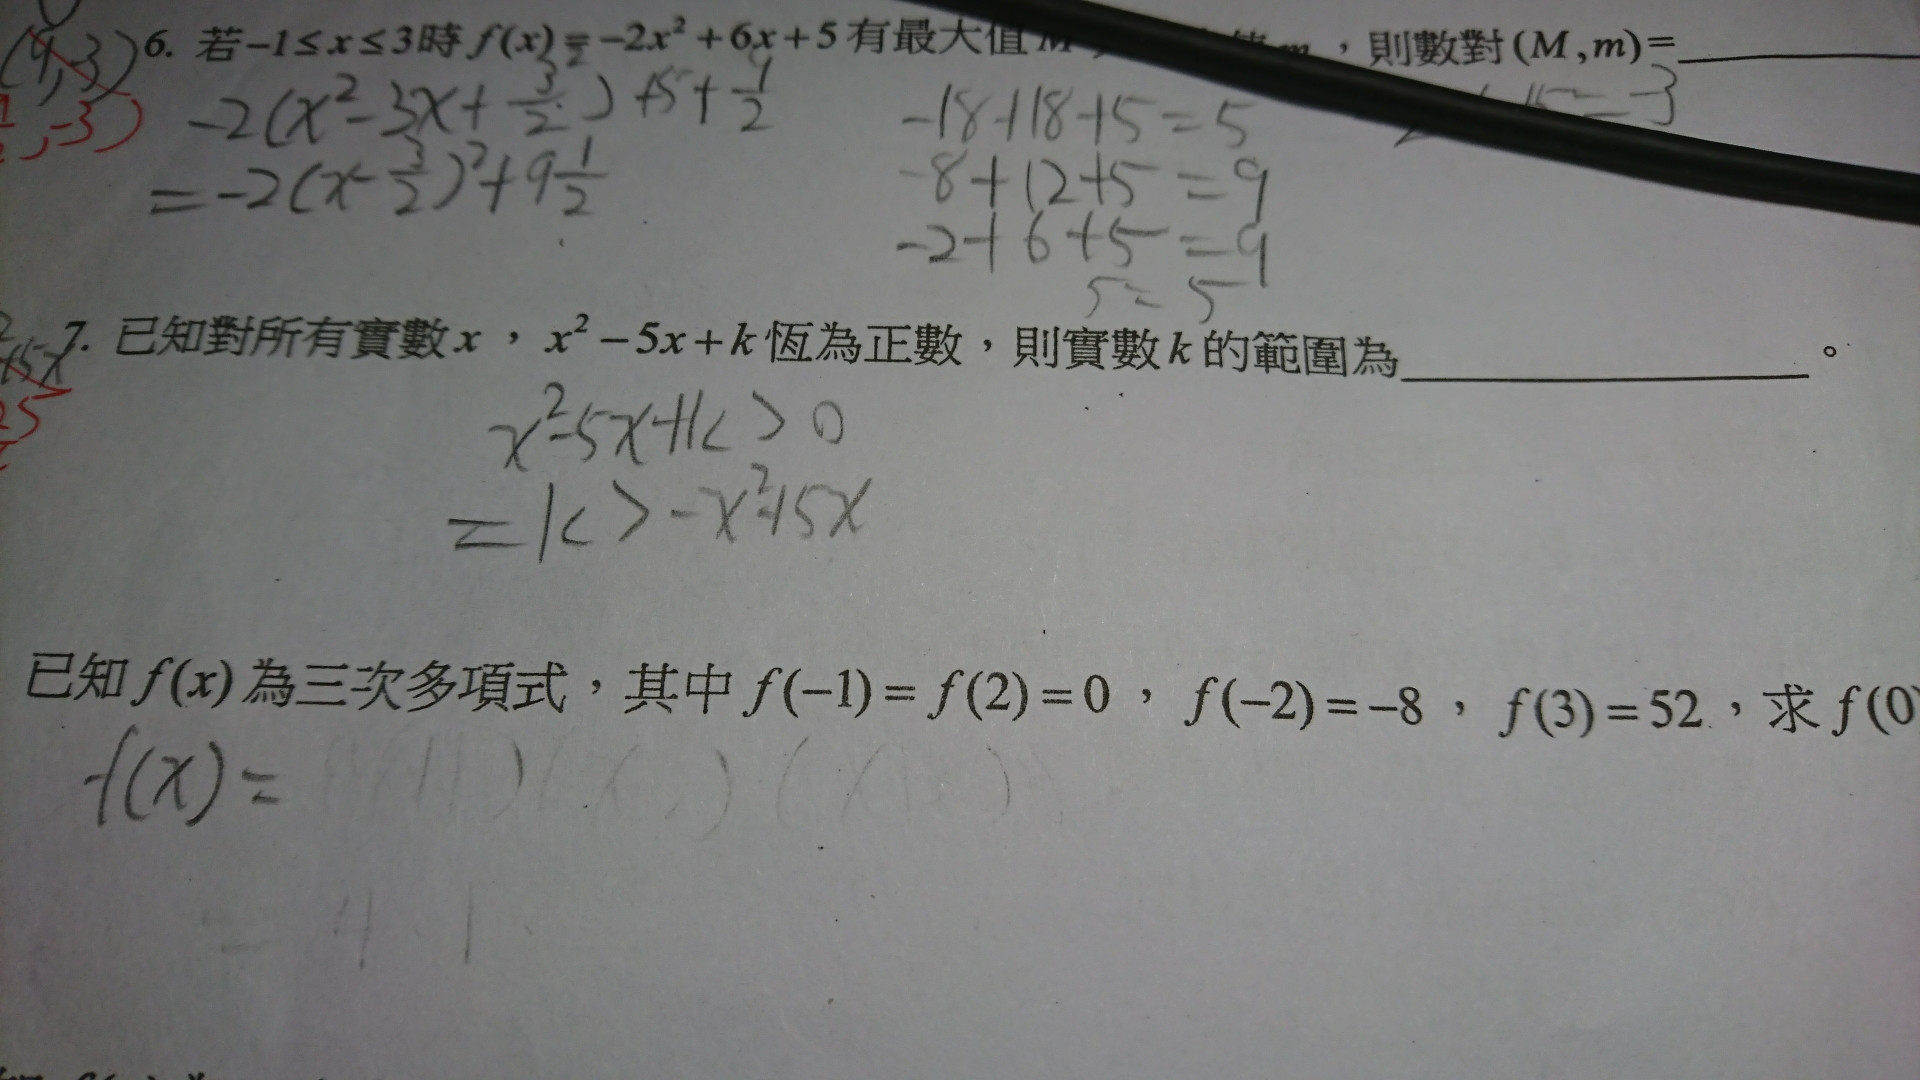 (9,-3)
6. 若-1≤x≤3時 f(x)=-2x²+6x+5有最大值M ，則數對(M,m)=
,-3)
-2(x²-3x+ 3/2 )+5+ 9/2
-18+18+5=5
=-3
=-2(x-3/2)²+9 1/2
-8+12+5=9
-2+6+5=9
5=5
7. 已知對所有實數x，x²-5x+k恆為正數，則實數k的範圍為 。
+5x
x²-5x+k>0
=k>-x²+5x
已知f(x)為三次多項式，其中f(-1)=f(2)=0，f(-2)=-8，f(3)=52，求f(0)
f(x)=